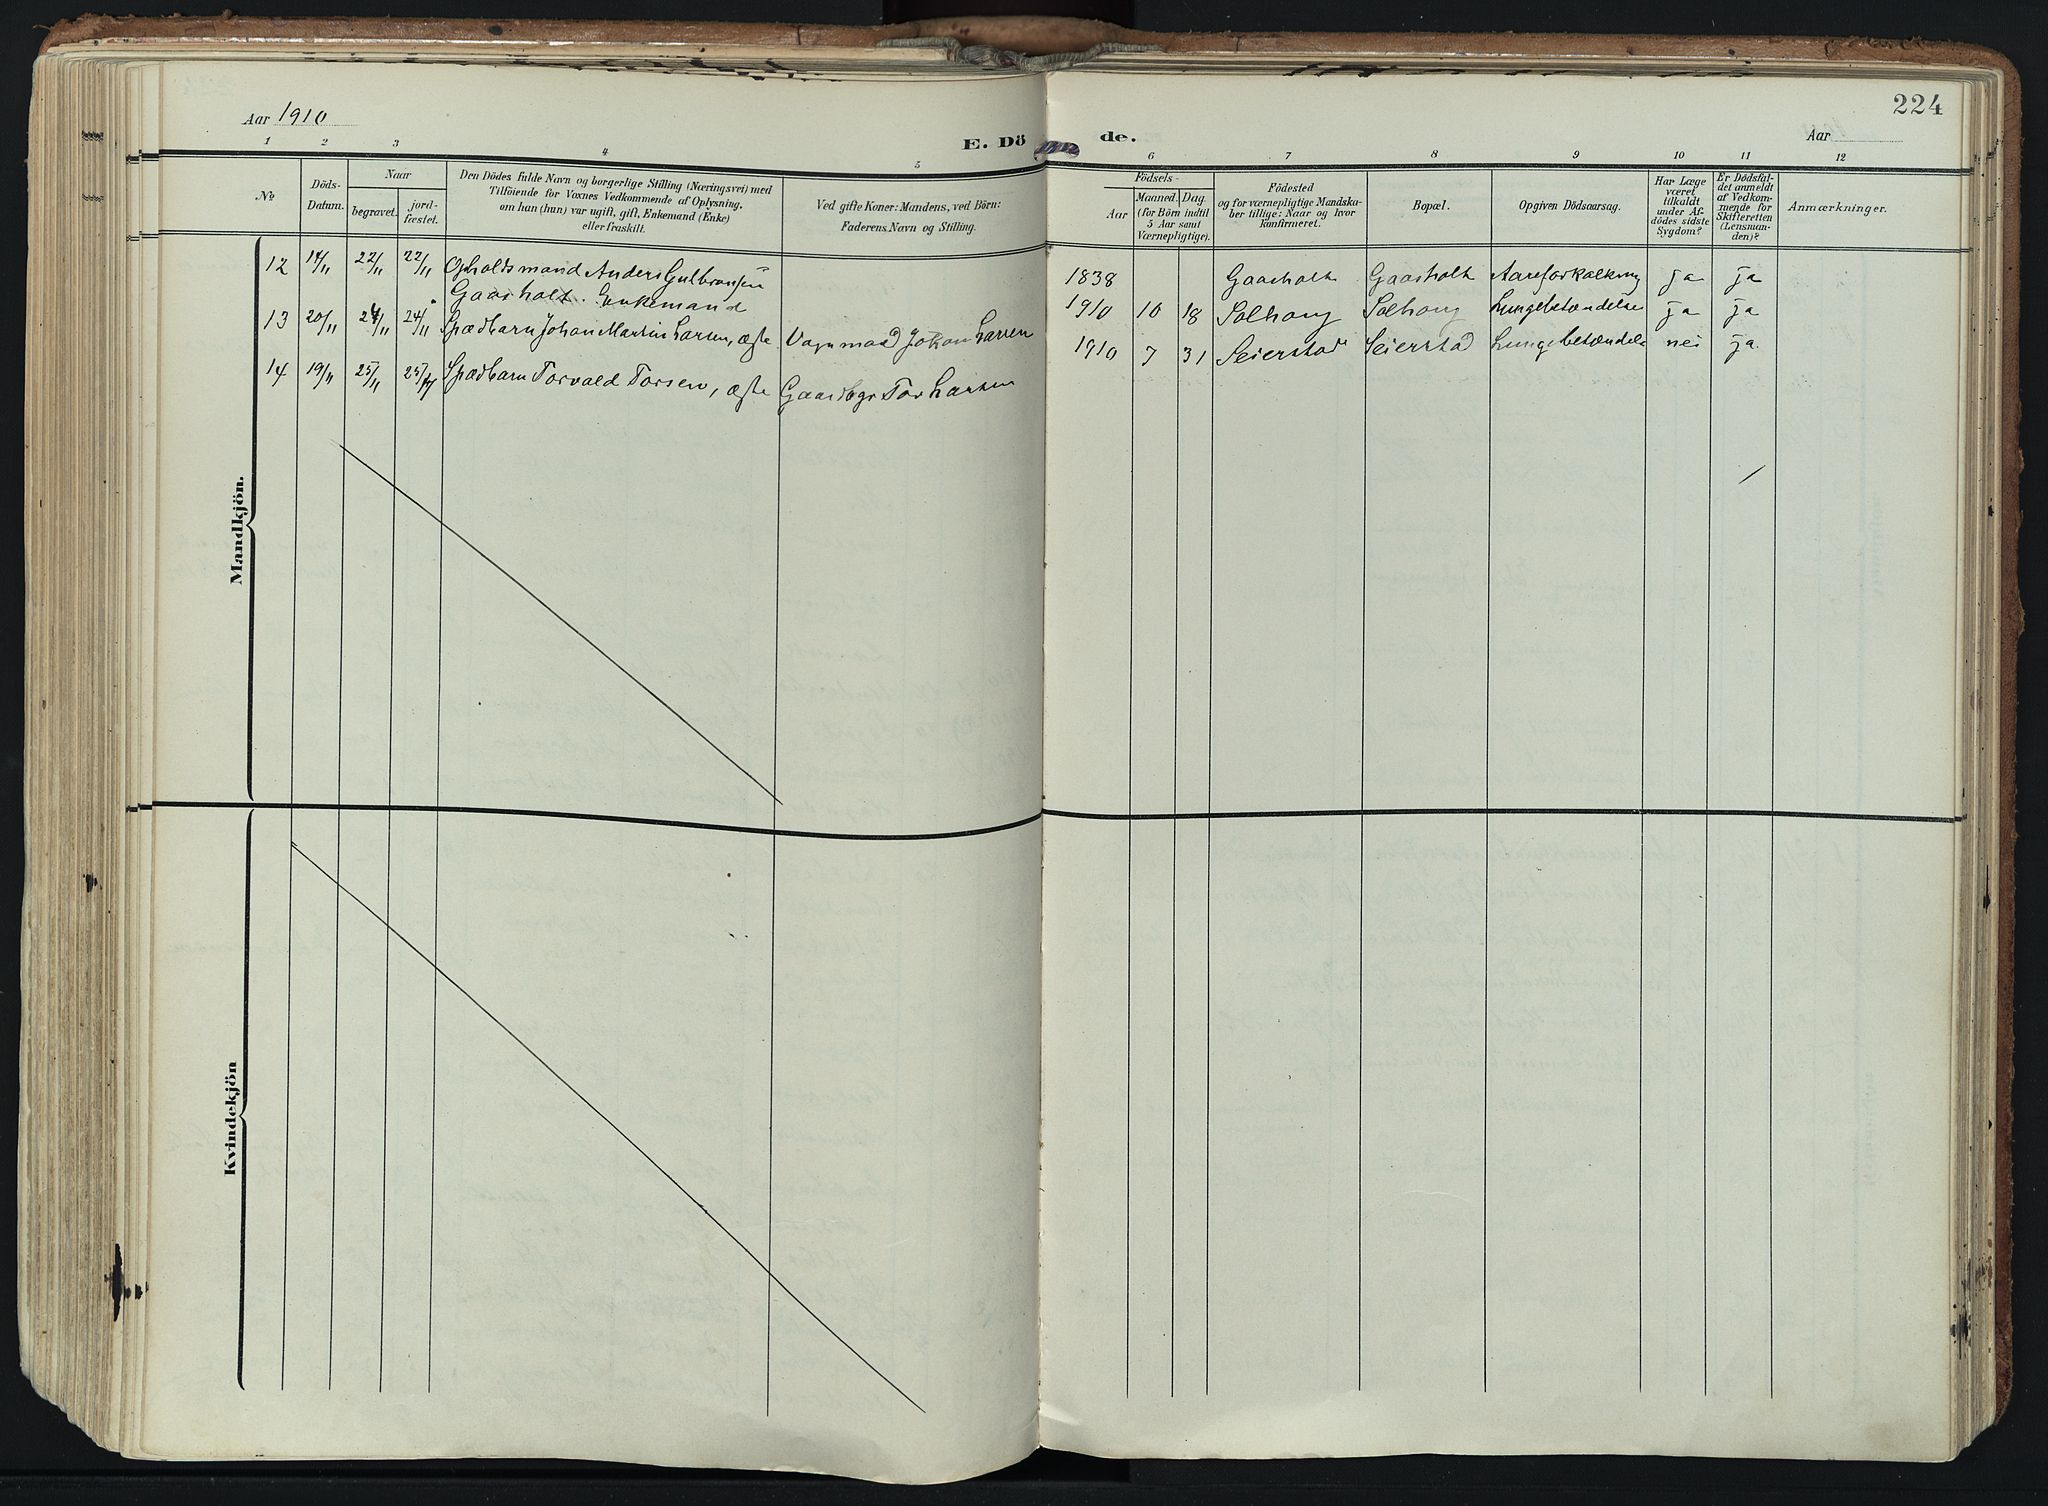 Aar 1910
E. Dö
de.
Aar
224
1 2 3 4 5 6 7 8 9 10 11 12
No
Döds-
Datum.
Naar
begravet.
jord-
fæstet.
Den Dödes fulde Navn og borgerlige Stilling (Næringsvei) med
Tilföiende for Voxnes Vedkommende af Oplysning,
om han (hun) var ugift, gift, Enkemand (Enke)
eller fraskilt.
Ved gifte Koner: Mandens, ved Börn:
Faderens Navn og Stilling.
Födsels-
Aar
Maaned.
Dag.
(for Börn indtil
5 Aar samt
Værnepligtige).
Födested
og for værnepligtige Mandska-
ber tillige: Naar og hvor
konfirmeret.
Bopæl.
Opgiven Dödsaarsag.
Har Læge
været
tilkaldt
under Af-
dödes sidste
Sygdom?
Er Dödsfal-
det anmeldt
af Vedkom-
mende for
Skifteretten
(Lensman-
den)?
Anmærkninger.
Mandkjön.
12 14/11 22/11 22/11 Opholdsmand Anders Gulbransen 1838 Gaasholt Gaasholt Aareforkalkning ja ja
Gaasholt. Enkemand
13 20/11 24/11 24/11 Spædbarn Johan Martin Larsen, ægte Vognmand Johan Larsen 1910 10 18 Solhaug Solhaug Lungebetændelse ja ja
14 19/11 25/11 25/11 Spædbarn Torvald Torsen, ægte Gaardbgr Tor Larsen 1910 7 31 Seierstad Seierstad Lungebetændels nei ja.
Kvindekjön